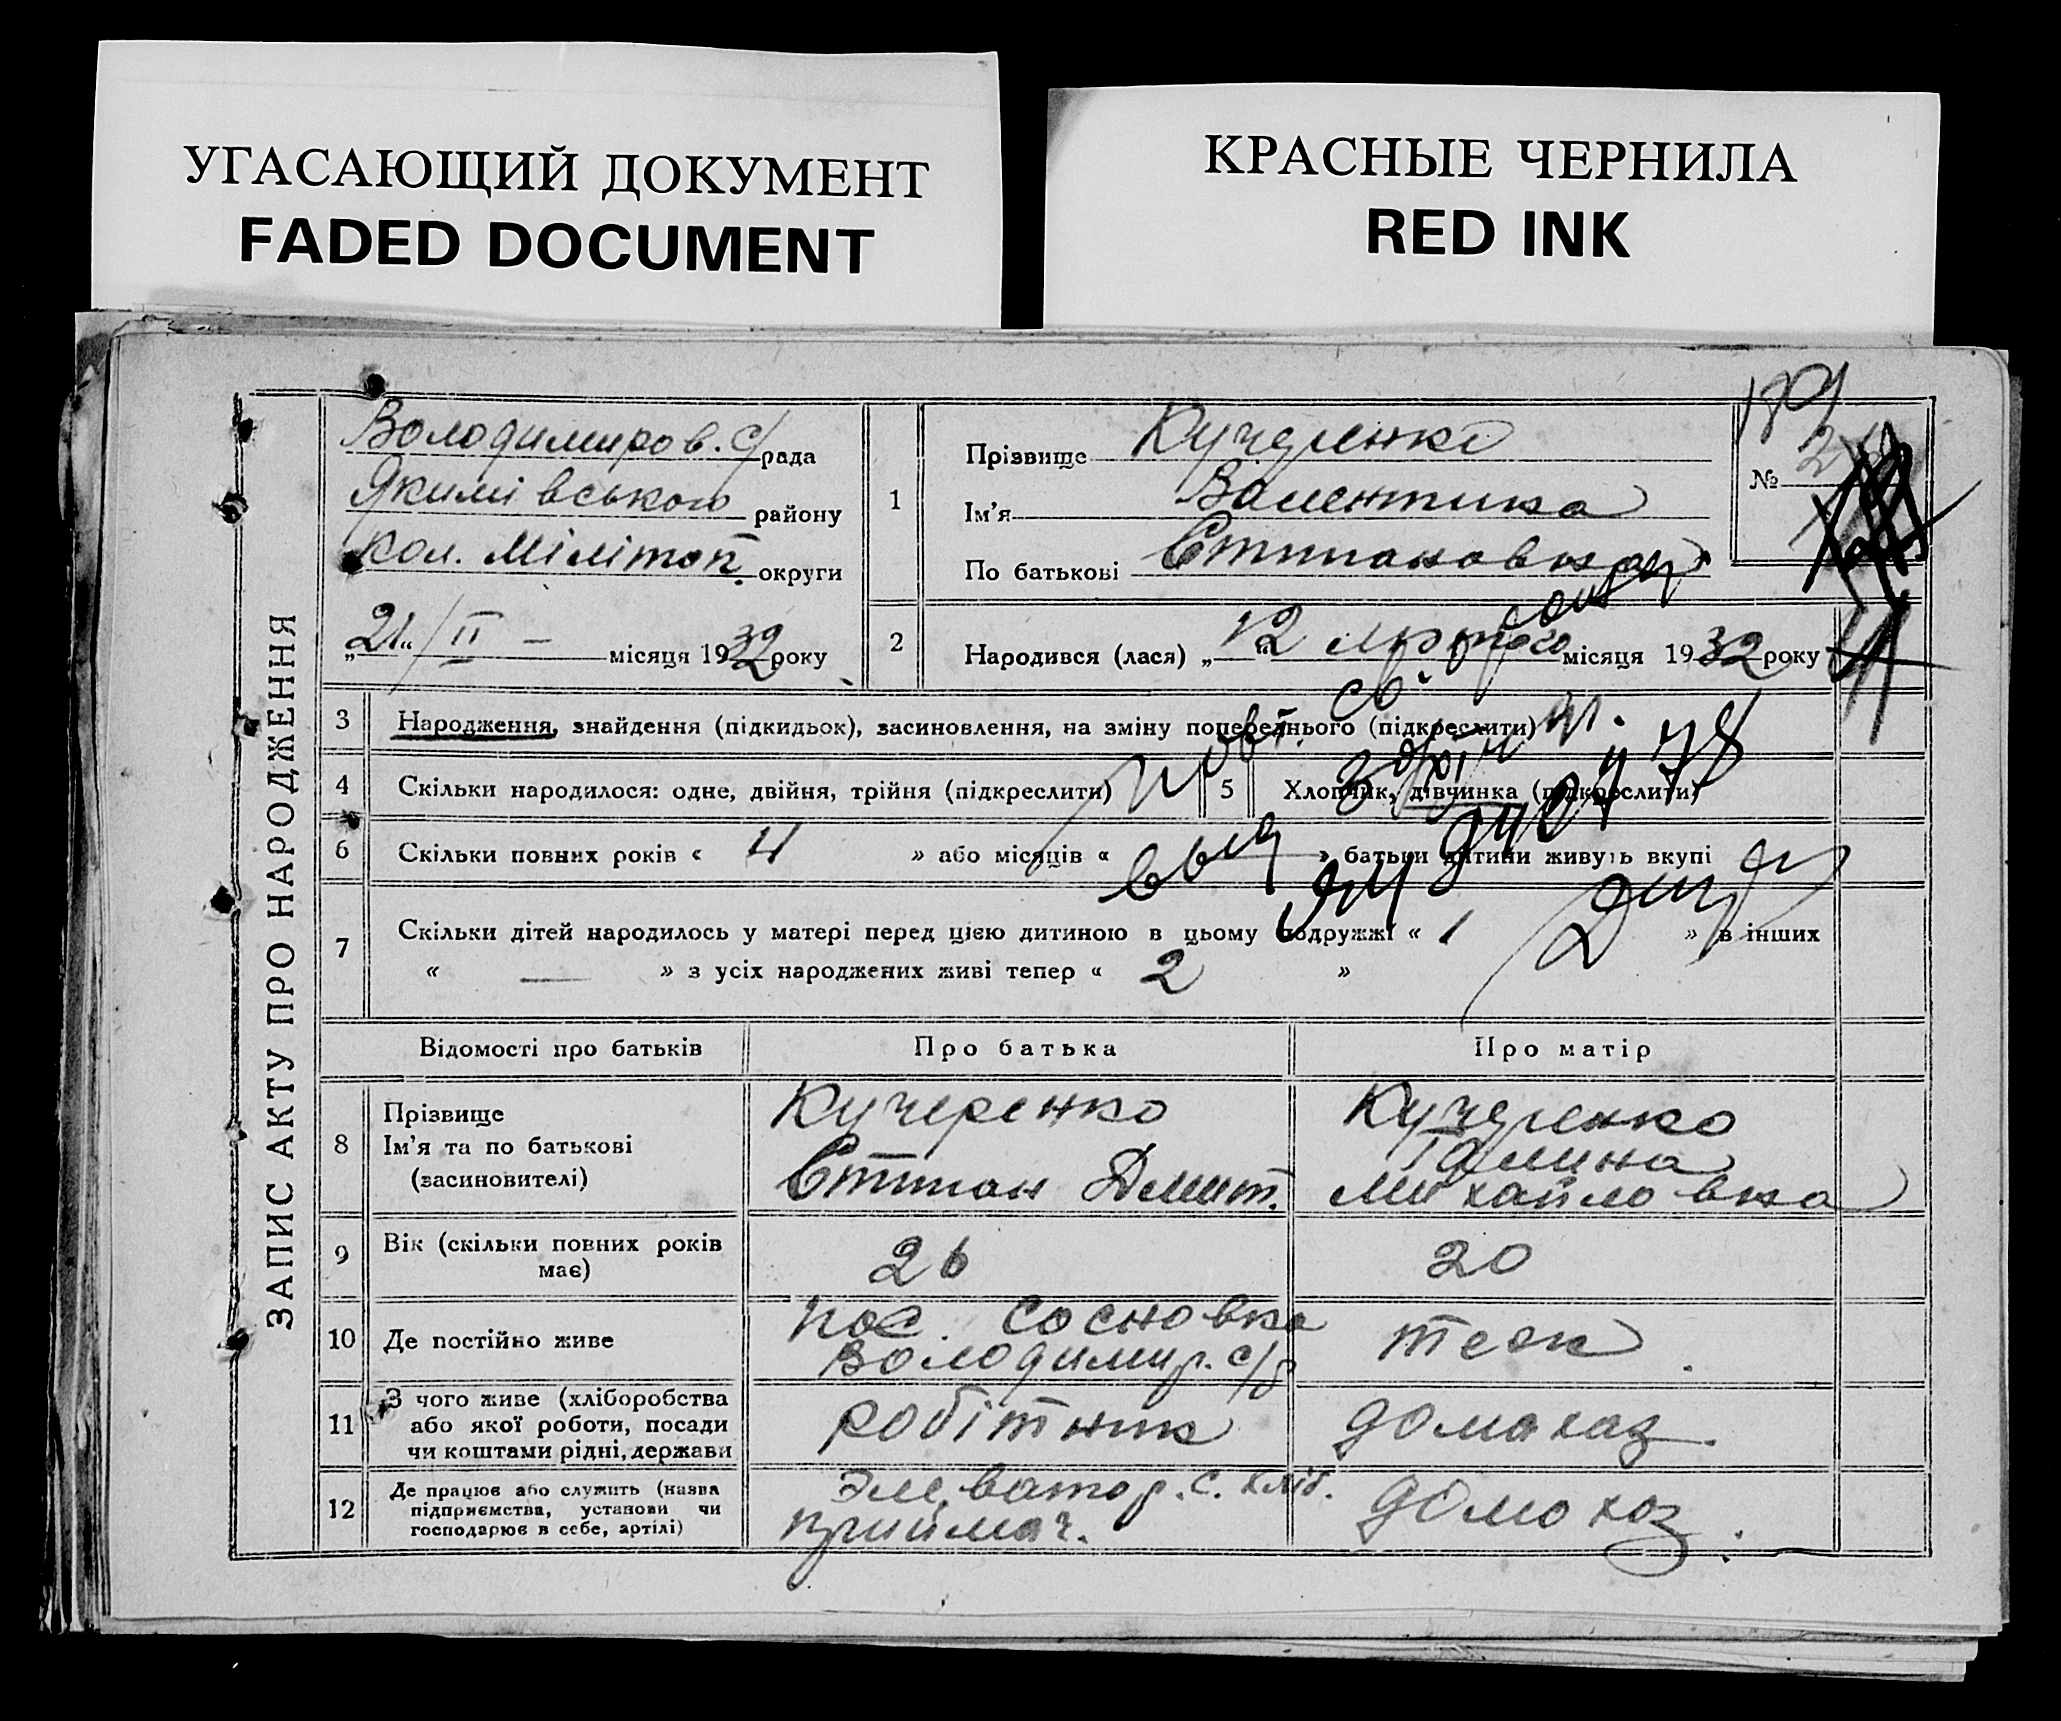 УГАСАЮЩИЙ ДОКУМЕНТ
FADED DOCUMENT
КРАСНЫЕ ЧЕРНИЛА
RED INK
ЗАПИС АКТУ ПРО НАРОДЖЕННЯ
Володимиров. с/рада
Якимівського району
кол. Мілітоп. округи
„21“ / II – місяця 1932 року
1
Прізвище Кучеренко
Ім'я Валентина
По батькові Степановна
№
189
2 Народився (лася) „12“ лютого місяця 1932 року
3 Народження, знайдення (підкидьок), засиновлення, на зміну попереднього (підкреслити)
4 Скільки народилося: одне, двійня, трійня (підкреслити)
5 Хлопчик, дівчинка (підкреслити)
6 Скільки повних років « 4 » або місяців « — » батьки дитини живуть вкупі
7 Скільки дітей народилось у матері перед цією дитиною в цьому подружжі « 1 » в інших
« — » з усіх народжених живі тепер « 2 »
Повт. св.
выд
78
Відомості про батьків
Про батька
Про матір
8 Прізвище
Ім'я та по батькові
(засиновителі)
Кучеренко
Степан Дмит.
Кучеренко
Галина
Михайловна
9 Вік (скільки повних років
має)
26
20
10 Де постійно живе
пос. Сосновка
Володимир. с/р
теж
11 З чого живе (хліборобства
або якої роботи, посади
чи коштами рідні, держави
робітник
домахаз.
12 Де працює або служить (назва
підприємства, установи чи
господарює в себе, артілі)
Элеватор. с. хліб.
приймач.
домохоз.